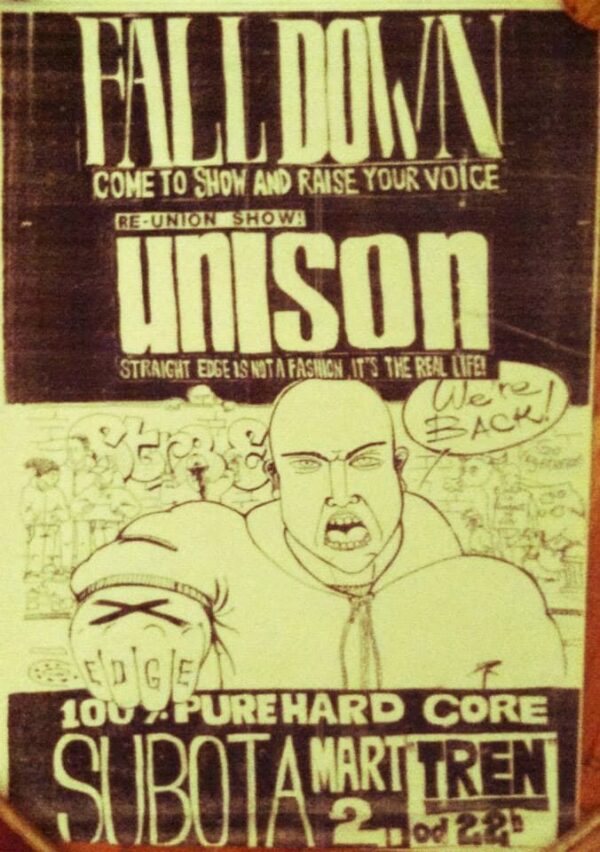 FALL DOWN
COME TO SHOW AND RAISE YOUR VOICE
RE-UNION SHOW!
unison
STRAIGHT EDGE IS NOT A FASHION, IT'S THE REAL LIFE!
We're
BACK!
X
EDGE
100% PURE HARD CORE
SUBOTA MART 2. TREN
od 22h